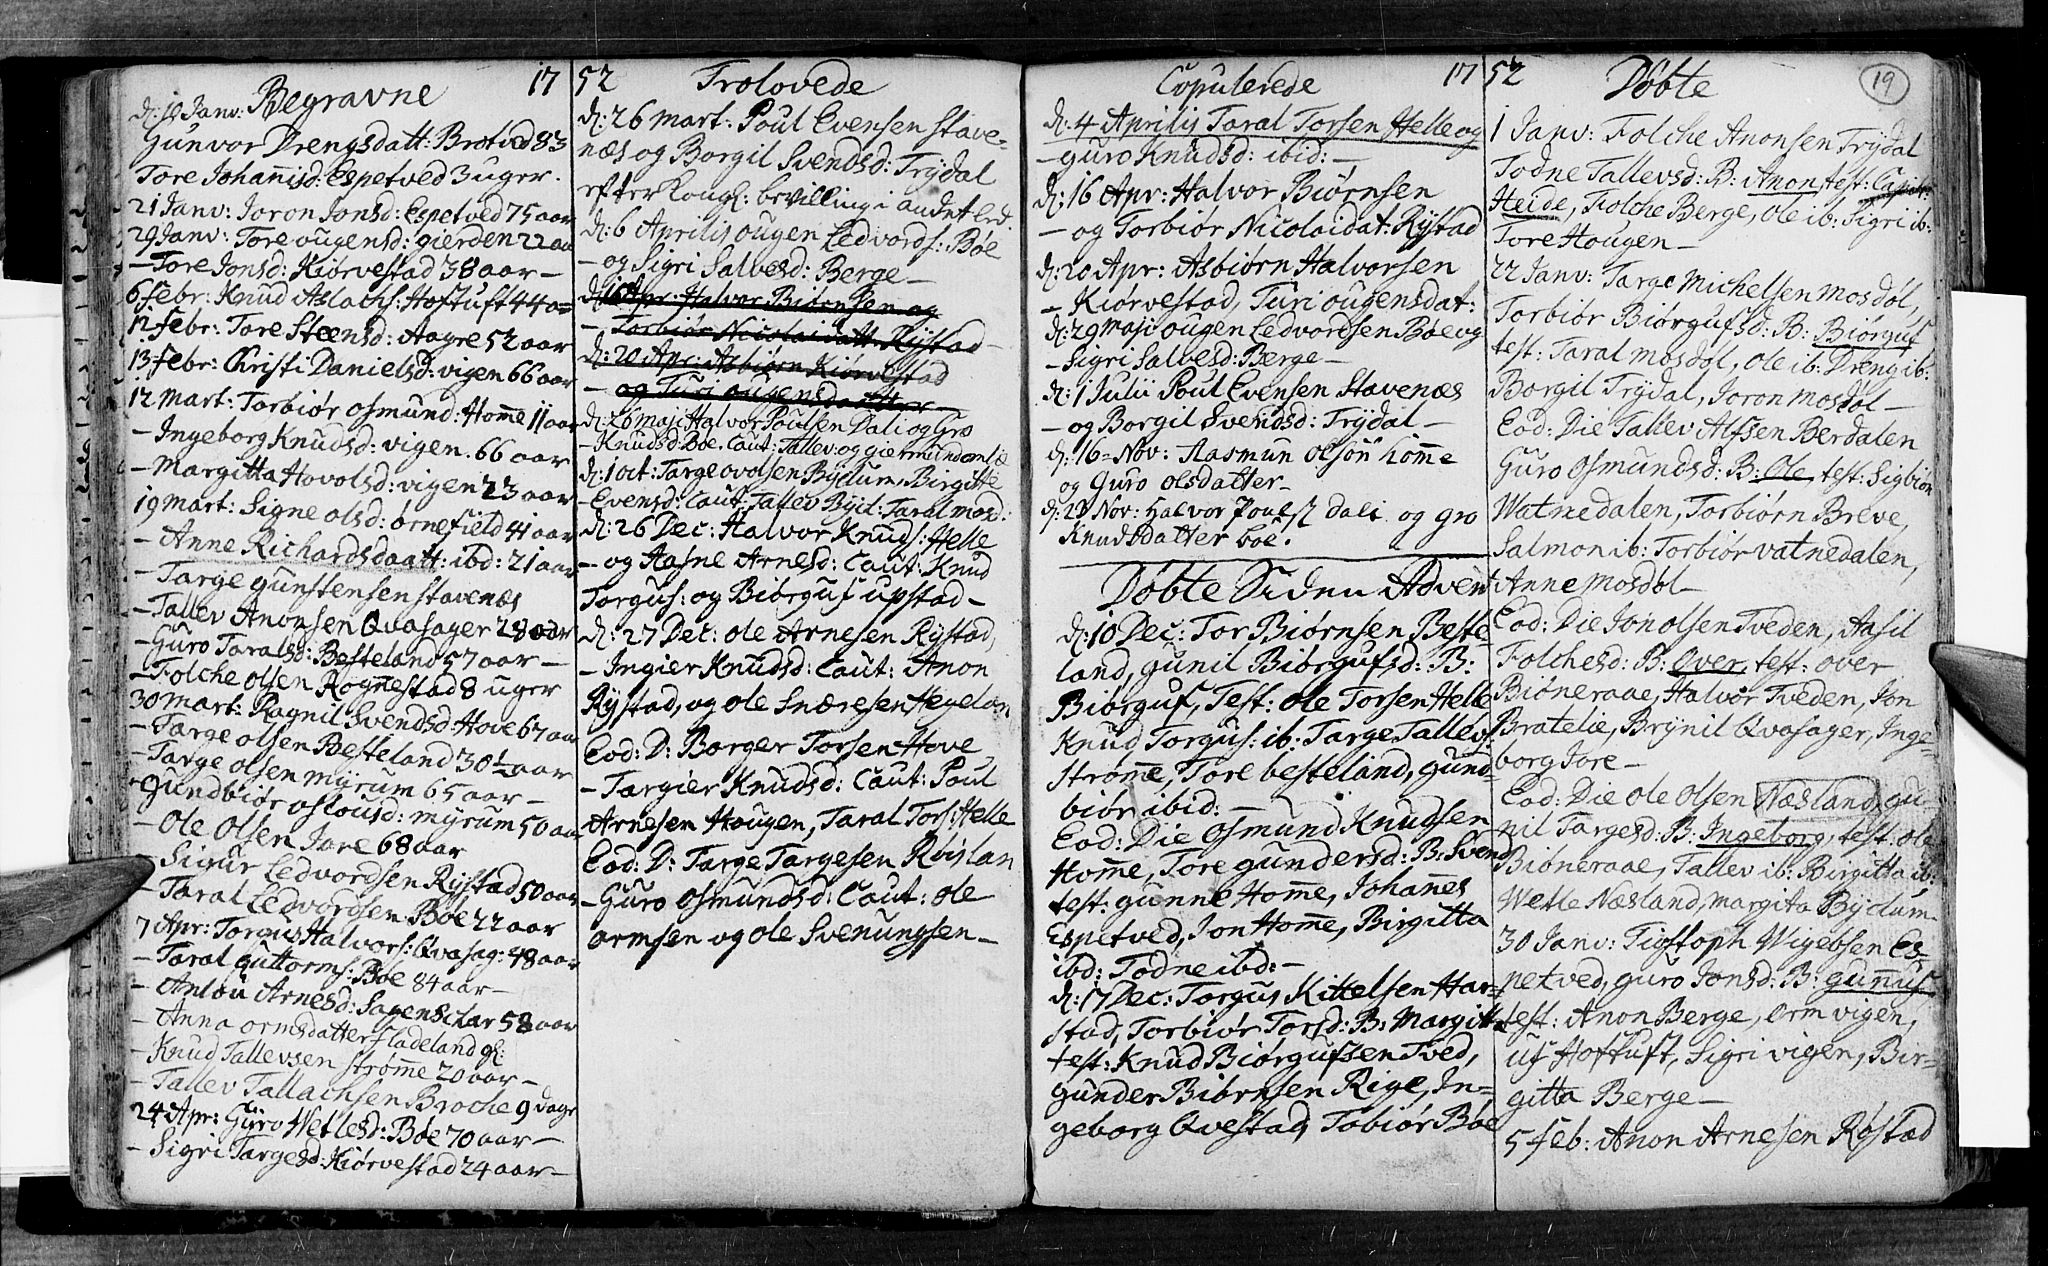 Begravne 17
d: 10 Janv:
Gunvor Drengsdatt: Brotved 83
Tore Johannisd: Espetved 3 uger.
21 Janv: Joron Jonsd: Espetved 75 aar
29 Janv: Tore ougensd: gierden 22 aa
– Tore Jonsd: Kiørvestad 38 aar –
6 Febr: Knud Aslachs: Hoftuft 44 a=
12 Febr: Tore Steensd: Aagre 52 aar
13 Febr: Christi Danielsd: vigen 66 aar
12 Mart: Torbiør osmund: Home 11 aar
– Ingeborg Knudsd: vigen. 66 aar
– Margitta Hovolsd: vigen 23 aar
19 Mart: Signe olsd: ørnefield 41 aar
– Anne Richardsdaatt: ibd: 21 aar
– Targe gunstensen stavenæs
– Tallev Anonsen Qvasager 28 aar
– Guro Taralsd: Besteland 57 aar –
– Folche olsen Rognestad 8 uger
30 Mart: Ragnil Svendsd Hove 67 aar
– Targe olsen Besteland 30½ aar
– Targe olsen myrum 65 aar –
– Gundbiør oslousd: myrum 50 aar
– Ole Olsen Jore 68 aar
– Sigur Ledvordsen Rystad 50 aar
– Taral Ledvordsen Bøe 22 aar
7 Apr: Torgus Halvors: Qvasag: 48 aar
– Taral guttorms: Bøe 84 aar –
– Anlou Arnesd: Sagenschar 58 aar
– Anna ormsdatter fladeland gl:
– Knud Tallevsen strømme 20 aar –
– Tallev Tallachsen Broche 9 dage
24 Apr: Guro Wetlesd: Bøe 70 aar –
– Sigri Targesd: Kiørvestad 24 aar –
52 Trolovede
d: 26 Mart: Poul Evensen Stave-
næs og Borgil Svendsd: Trydal
efter kongl: bevilling i andet led
d: 6 Aprilis ougen Ledvords: Bøe
– og Sigri Salvesd: Berge –
d: 16 Apr: Halvor Biørnsen og
– Torbiør Nicolaidatt: Rystad –
d: 20 Apr: Asbiørn Kiørvestad
– og Turi ougensdatter –
d: 26 maji Halvor Poulsen Dali og Gro
– Knudsd: Bøe. Caut: Tallev og giermund
d: 1 oct: Targe ovolsen Byclum, Birgitte
– Evensd: Caut: Tallev Bycl: Taral mosd:
d: 26 Dec: Halvor Knuds: Helle
– og Aasne Arnesd: Caut: Knud
Torgus: og Biørguf upstad –
d: 27 Dec: ole Arnesen Rystad,
– Ingier Knudsd: Caut: Anon
Rystad, og ole Snæresen Hegelan
Eod: D: Borger Torsen Hove
– Targier Knudsd: Caut: Poul
Arnesen Hougen, Taral Tors: Helle
Eod: D: Targe Targesen Rvislan
– Guro Osmundsd: Caut: ole
ormsen og ole Svenungsen –
Copulerede 17
d: 4 Aprilis Taral Torsen Helle og
– guro Knudsd: ibid: –
d: 16 Apr: Halvor Biørnsen
– og Torbiør Nicolaidat: Rystad
d: 20 Apr: Asbiørn Halvorsen
– Kiørvestad, Turi ougensdat:
d: 29 Maji ougen Ledvordsen Bøe og
– Sigri Salvesd: Berge –
d: 1 Julii Poul Evensen Stavenæs
– og Borgil Svendsd: Trydal –
d: 16 Nov: Aasmun olson home
og Guro olsdatter –
d: 22 Nov: Halvor Poulss dali og gro
Knudsdatter boe.
Døbte Siden Advent
d: 10 Dec: Tor Biørnsen Beste-
land, gunil Biørgufsd: B:
Biørguf, Test: Ole Torsen Helle
Knud Torgus: ib: Targe Tallevs:
strømme, Tore besteland, gund-
biør ibid: –
Eod: Die Osmund Knudsen
Home, Tore gundersd: B: Svend
test: gunne Home, Johannes
Espetved, Jon Home, Birgitta
ibd: Todne ibd: –
d: 17 Dec: Torgus Kittelsen Har-
stad, Torbiør Torsd: B: Margitt
test: Knud Biørgufsen Tved,
gunder Biørnsen Rige, In-
geborg Qvestad, Tobiør Bøe
52 Døbte 19
1 Janv: Folche Anonsen Trydal
Todne Tallevsd: B: Anon test: Capit:
Heide, Folche Berge, ole ib: Sigri ib:
Tore Hougen –
22 Janv: Targe Michelsen mosdøl,
Torbiør Biørgufsd: B: Biørguf
test: Taral mosdøl, ole ib: Dreng ib:
Borgil Trydal, Joron mosdøl –
Eod: Die Tallev Alfsen Berdalen
Guro osmundsd: B: Ole test: Sigbiørn
Watnedalen, Torbiørn Breve,
Salmon ib: Torbiør vatnedalen,
Anne mosdøl –
Eod: Die Jon olsen Tveden, Aasil
Folchesd: B: Over, test: over
Biøneraae, Halvor Tveden, Jon
Bratelie, Brynil Qvasager, Inge-
borg Jore –
Eod: Die ole olsen Næsland, gu-
nil Targesd: B: Ingeborg, test: ole
Biøneraae, Tallev ib: Birgitta ib:
Wetle Næsland, Margita Byclum –
30 Janv: Tiostoph Wigebsen Es-
petved, guro Jonsd: B: gunnuf
test: Anon Berge, orm vigen,
uf Hoftuft, Sigri vigen, Bir-
gitta Berge –
5 Feb: Anon Arnesen Røstad